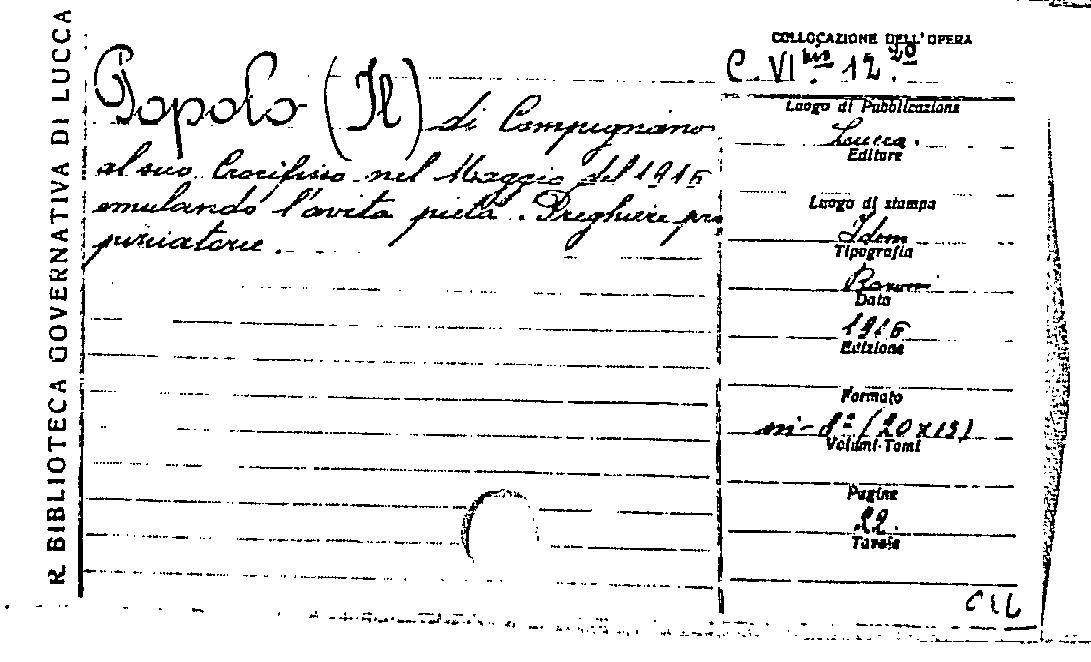 R. BIBLIOTECA GOVERNATIVA DI LUCCA
Popolo (Il) di Compignano
al suo Crocifisso nel Maggio del 1916
emulando l'avita pietà. Preghiere pro
piziatorie.
COLLOCAZIONE DELL'OPERA
C. VI bis 12. 20
Luogo di Pubblicazione
Lucca.
Editore
Luogo di stampa
Idem
Tipografia
Baroni
Data
1916
Edizione
Formato
in-8º (20x13)
Volumi-Tomi
Pagine
22.
Tavole